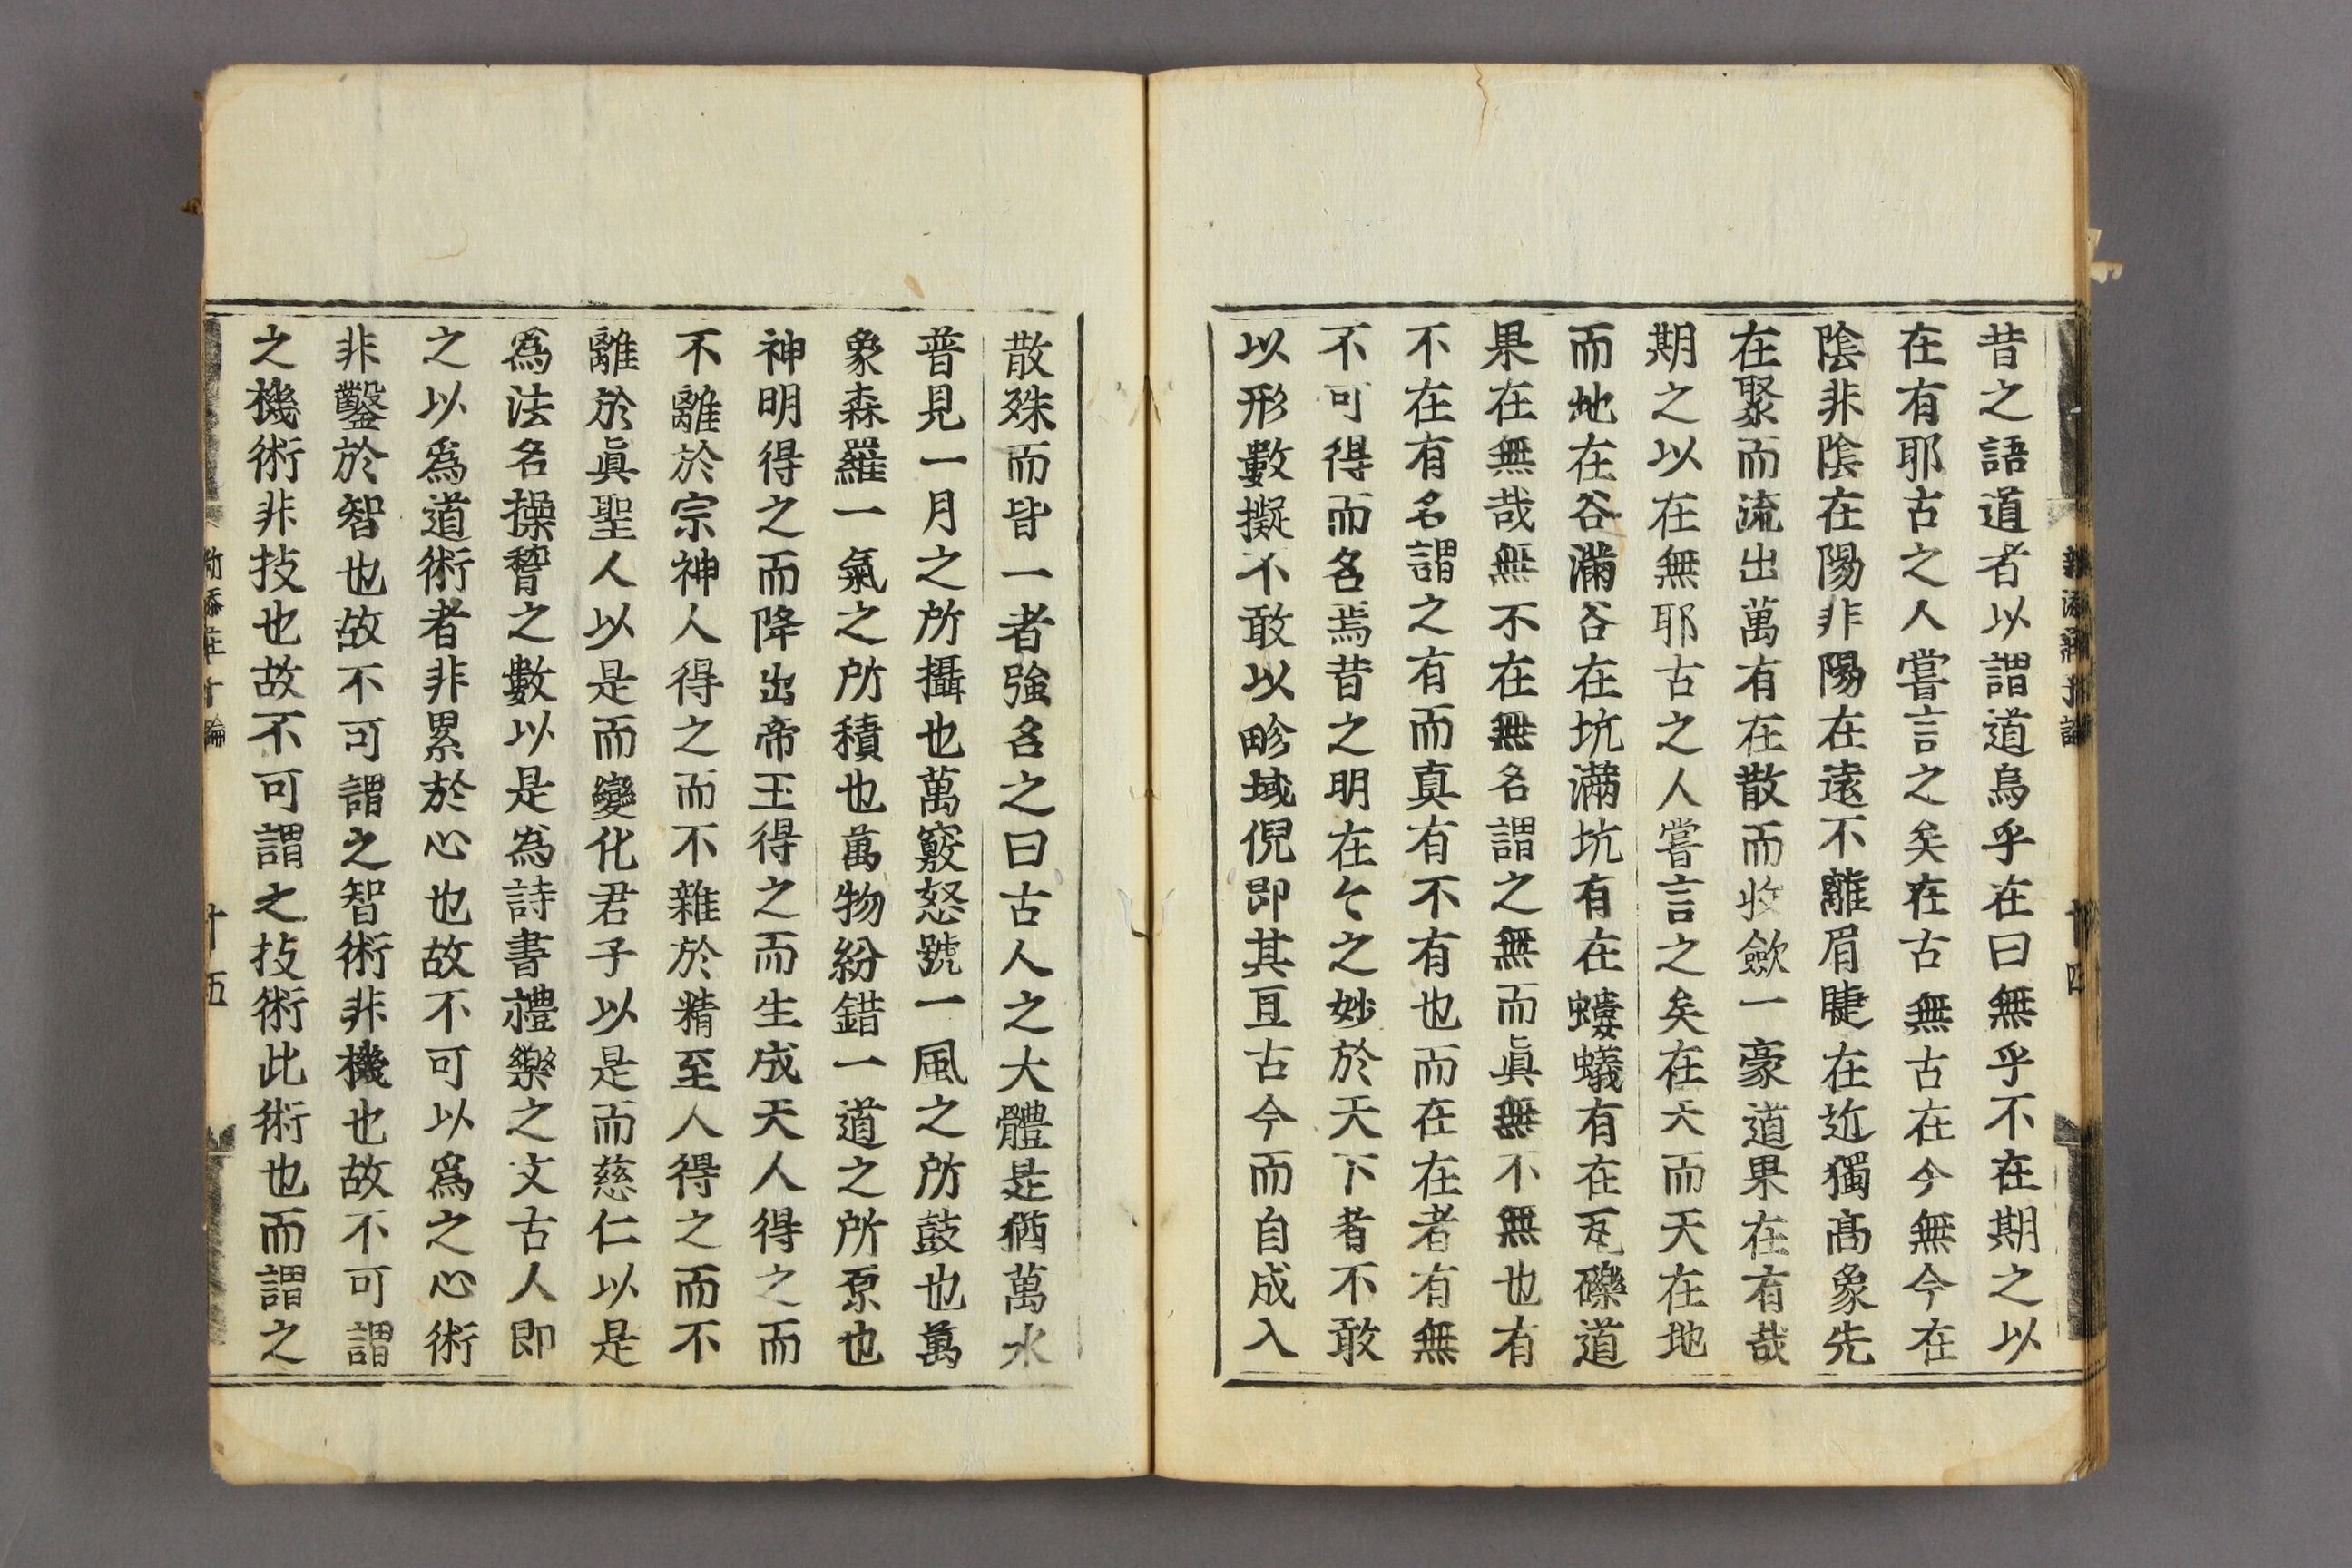 昔之語道者以謂道烏乎在曰無乎不在期之以
在有耶古之人嘗言之矣在古無古在今無今在
陰非陰在陽非陽在遠不離眉睫在近獨髙象先
在聚而流出萬有在散而收歛一豪道果在有哉
期之以在無耶古之人嘗言之矣在天而天在地
而地在谷滿谷在坑滿坑有在螻蟻有在瓦礫道
果在無哉無不在無名謂之無而眞無不無也有
不在有名謂之有而真有不有也而在在者有無
不可得而名焉昔之明在在之妙於天下者不敢
以形數擬不敢以畛域倪即其亘古今而自成入
散殊而皆一者強名之曰古人之大體是猶萬水
普見一月之所攝也萬竅怒號一風之所鼓也萬
象森羅一氣之所積也萬物紛錯一道之所原也
神明得之而降出帝王得之而生成天人得之而
不離於宗神人得之而不雜於精至人得之而不
離於眞聖人以是而變化君子以是而慈仁以是
爲法名操稽之數以是為詩書禮樂之文古人即
之以爲道術者非累於心也故不可以爲之心術
非鑿於智也故不可謂之智術非機也故不可謂
之機術非技也故不可謂之技術此術也而謂之
十五